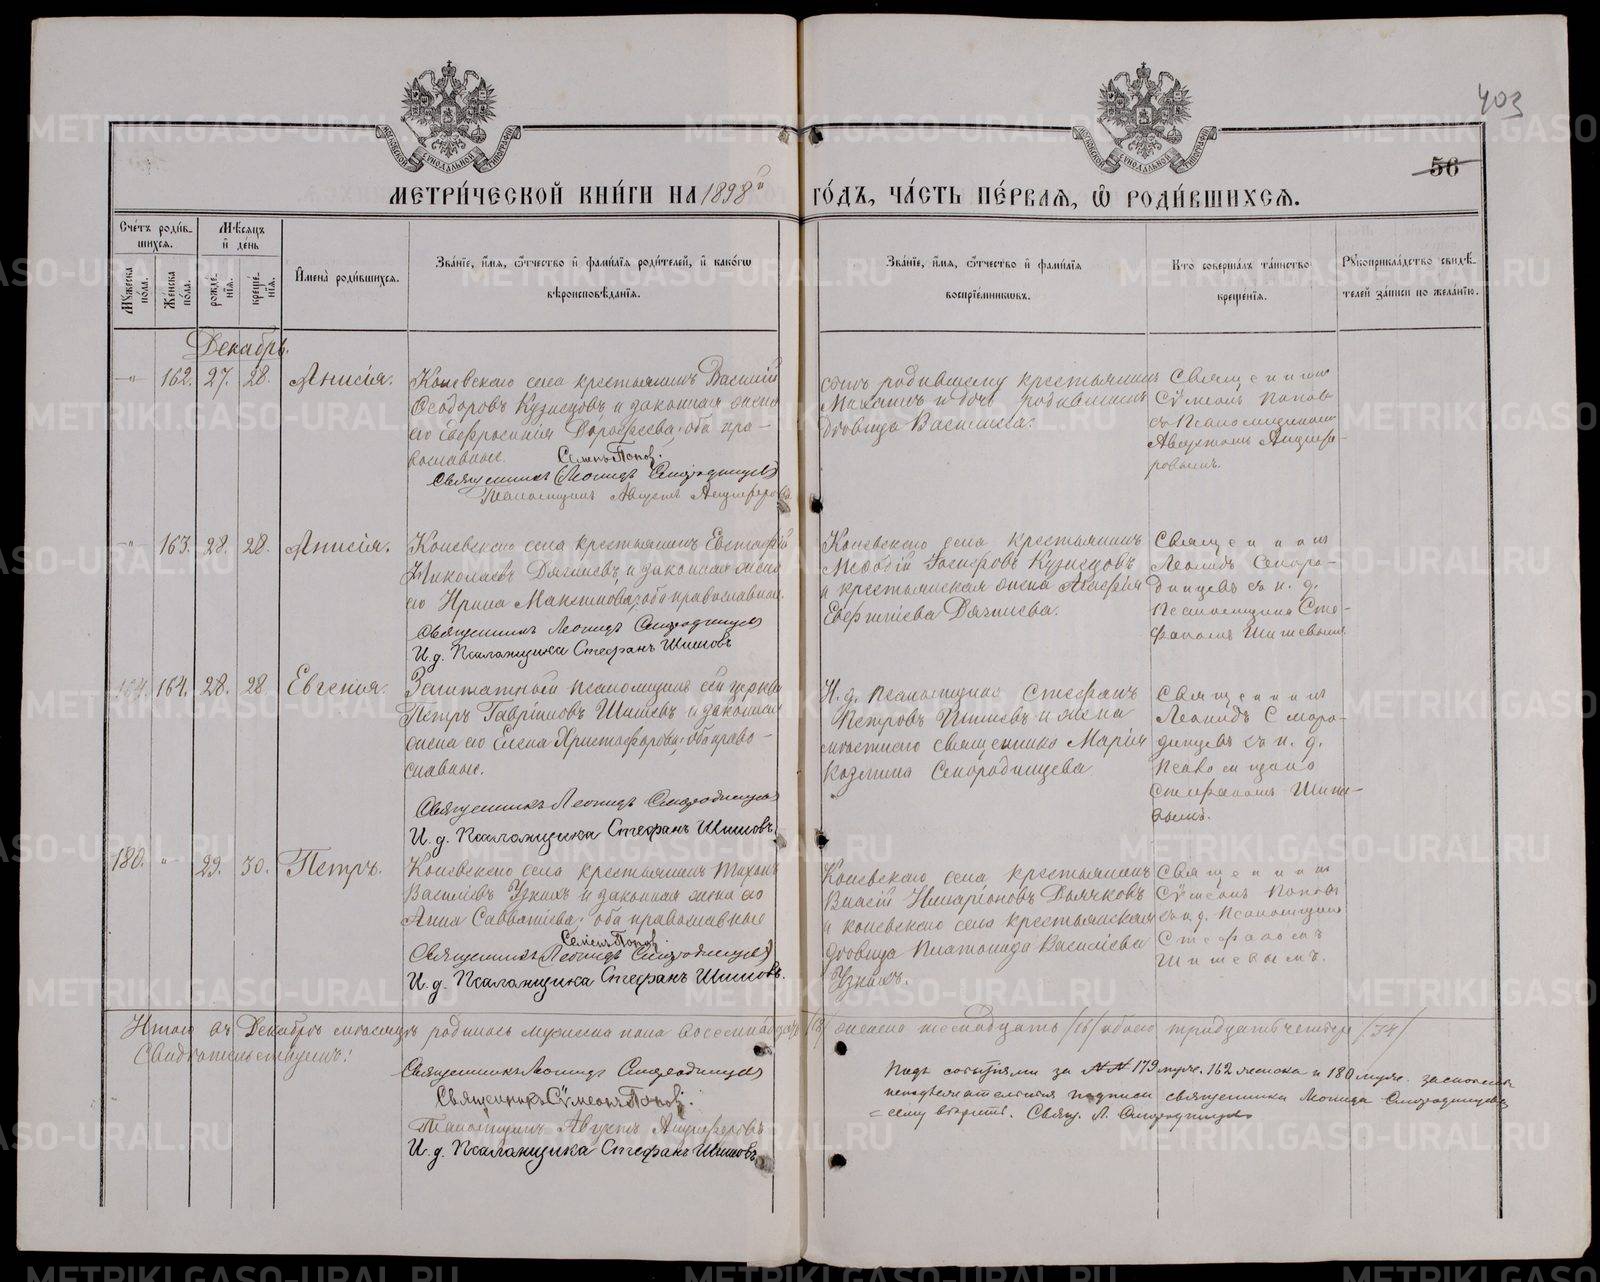 403
56
МОСКОВСКОЙ СѴНОДАЛЬНОЙ ТИПОГРАФІИ
МОСКОВСКОЙ СѴНОДАЛЬНОЙ ТИПОГРАФІИ
МЕТРИ́ЧЕСКОЙ КНИ́ГИ НА 1898й ГО́ДЪ, ЧА́СТЬ ПЕ́РВАЯ, Ѿ РОДИ́ВШИХСЯ.
Сче́тъ роди́в-
шихся.
Мꙋ́жеска
по́ла.
Же́нска
по́ла.
Мѣ́сяцъ
и де́нь
рожде́-
нїя.
креще́-
нїя.
И҆мена̀ роди́вшихся.
Зва́нїе, и҆́мя, ѻ҆́тчество и҆ фами́лїя роди́телей, и҆ како́гѡ
вѣроисповѣ́данїя.
Зва́нїе, и҆́мя, ѻ҆́тчество и҆ фами́лїя
воспрїе́мникѡвъ.
Кто̀ соверша́лъ та́инство
креще́нїя.
Рꙋкоприкла́дство свидѣ́-
телей за́писи по жела́нїю.
Декабрь.
-"- 162. 27. 28. Анисія.
Коневскаго села крестьянинъ Василій
Ѳеодоровъ Кузнецовъ и законная жена
его Евфросинія Дороѳеева, оба пра-
вославные.
Семенъ Попов.
Священникъ Леонидъ Смородинцевъ
Псаломщикъ Августъ Анцыферовъ
сынъ родившему крестьянинъ
вдовица Васильева.
Священникъ
Сѵмеонъ Поповъ
съ Псаломщикомъ
Августомъ Анцыфе-
ровымъ.
-"- 163. 28. 28. Анисія.
Коневскаго села крестьянинъ Евстафій
Николаевъ Дягилевъ и законная жена
его Ирина Максимова, оба православные.
Священникъ Леонидъ Смородинцевъ
И. д. Псаломщика Стефанъ Шишовъ
Коневскаго села крестьянинъ
Меѳодій Кузнецовъ
и крестьянская жена
Дягилева.
Священникъ
Леонидъ Сморо-
динцевъ съ и. д.
Псаломщика Сте-
фаномъ Шишевымъ
164. 164. 28. 28. Евгенія.
Заштатный псаломщикъ сей церкви
Петръ Гавріиловъ Шишевъ и законная
жена его Елена Христофорова, оба право-
славные.
Священникъ Леонидъ Смородинцевъ
И. д. Псаломщика Стефанъ Шишовъ
И. д. псаломщика Стефанъ
Петровъ Шишевъ и жена
мѣстнаго священника Марія
Козмина Смородинцева
Священникъ
Леонидъ Сморо-
динцевъ съ и. д.
Псаломщика
Стефаномъ Шише-
вымъ.
180. " 29. 30. Петръ.
Коневскаго села крестьянинъ Тихонъ
Василіевъ Узкихъ и законная жена его
Анна Савватіева, оба православные
Семенъ Попов.
Священникъ Леонидъ Смородинцевъ
И. д. Псаломщика Стефанъ Шишовъ.
Коневскаго села крестьянинъ
Власій Иларіоновъ Дьячковъ
и коневскаго села крестьянская
вдовица Платонида Василіева
Узкихъ.
Священникъ
Сѵмеонъ Поповъ
съ и. д. Псаломщика
Стефаномъ
Шишевымъ.
Итого въ Декабрѣ мѣсяцѣ родилось мужеска пола восемнадцать /18/ женска шестнадцать /16/ обоего тридцать четыре /34/
Свидѣтельствуемъ:
Священникъ Леонидъ Смородинцевъ
Священникъ Сѵмеонъ Попов.
Псаломщикъ Августъ Анцыферовъ
И. д. Псаломщика Стефанъ Шишовъ
Подъ событіями за №№ 179 муж. 162 женска и 180 муж.
подписи священника Леонида Смородинцева
сему вѣрить. Свящ. Л. Смородинцевъ
METRIKI.GASO-URAL.RU